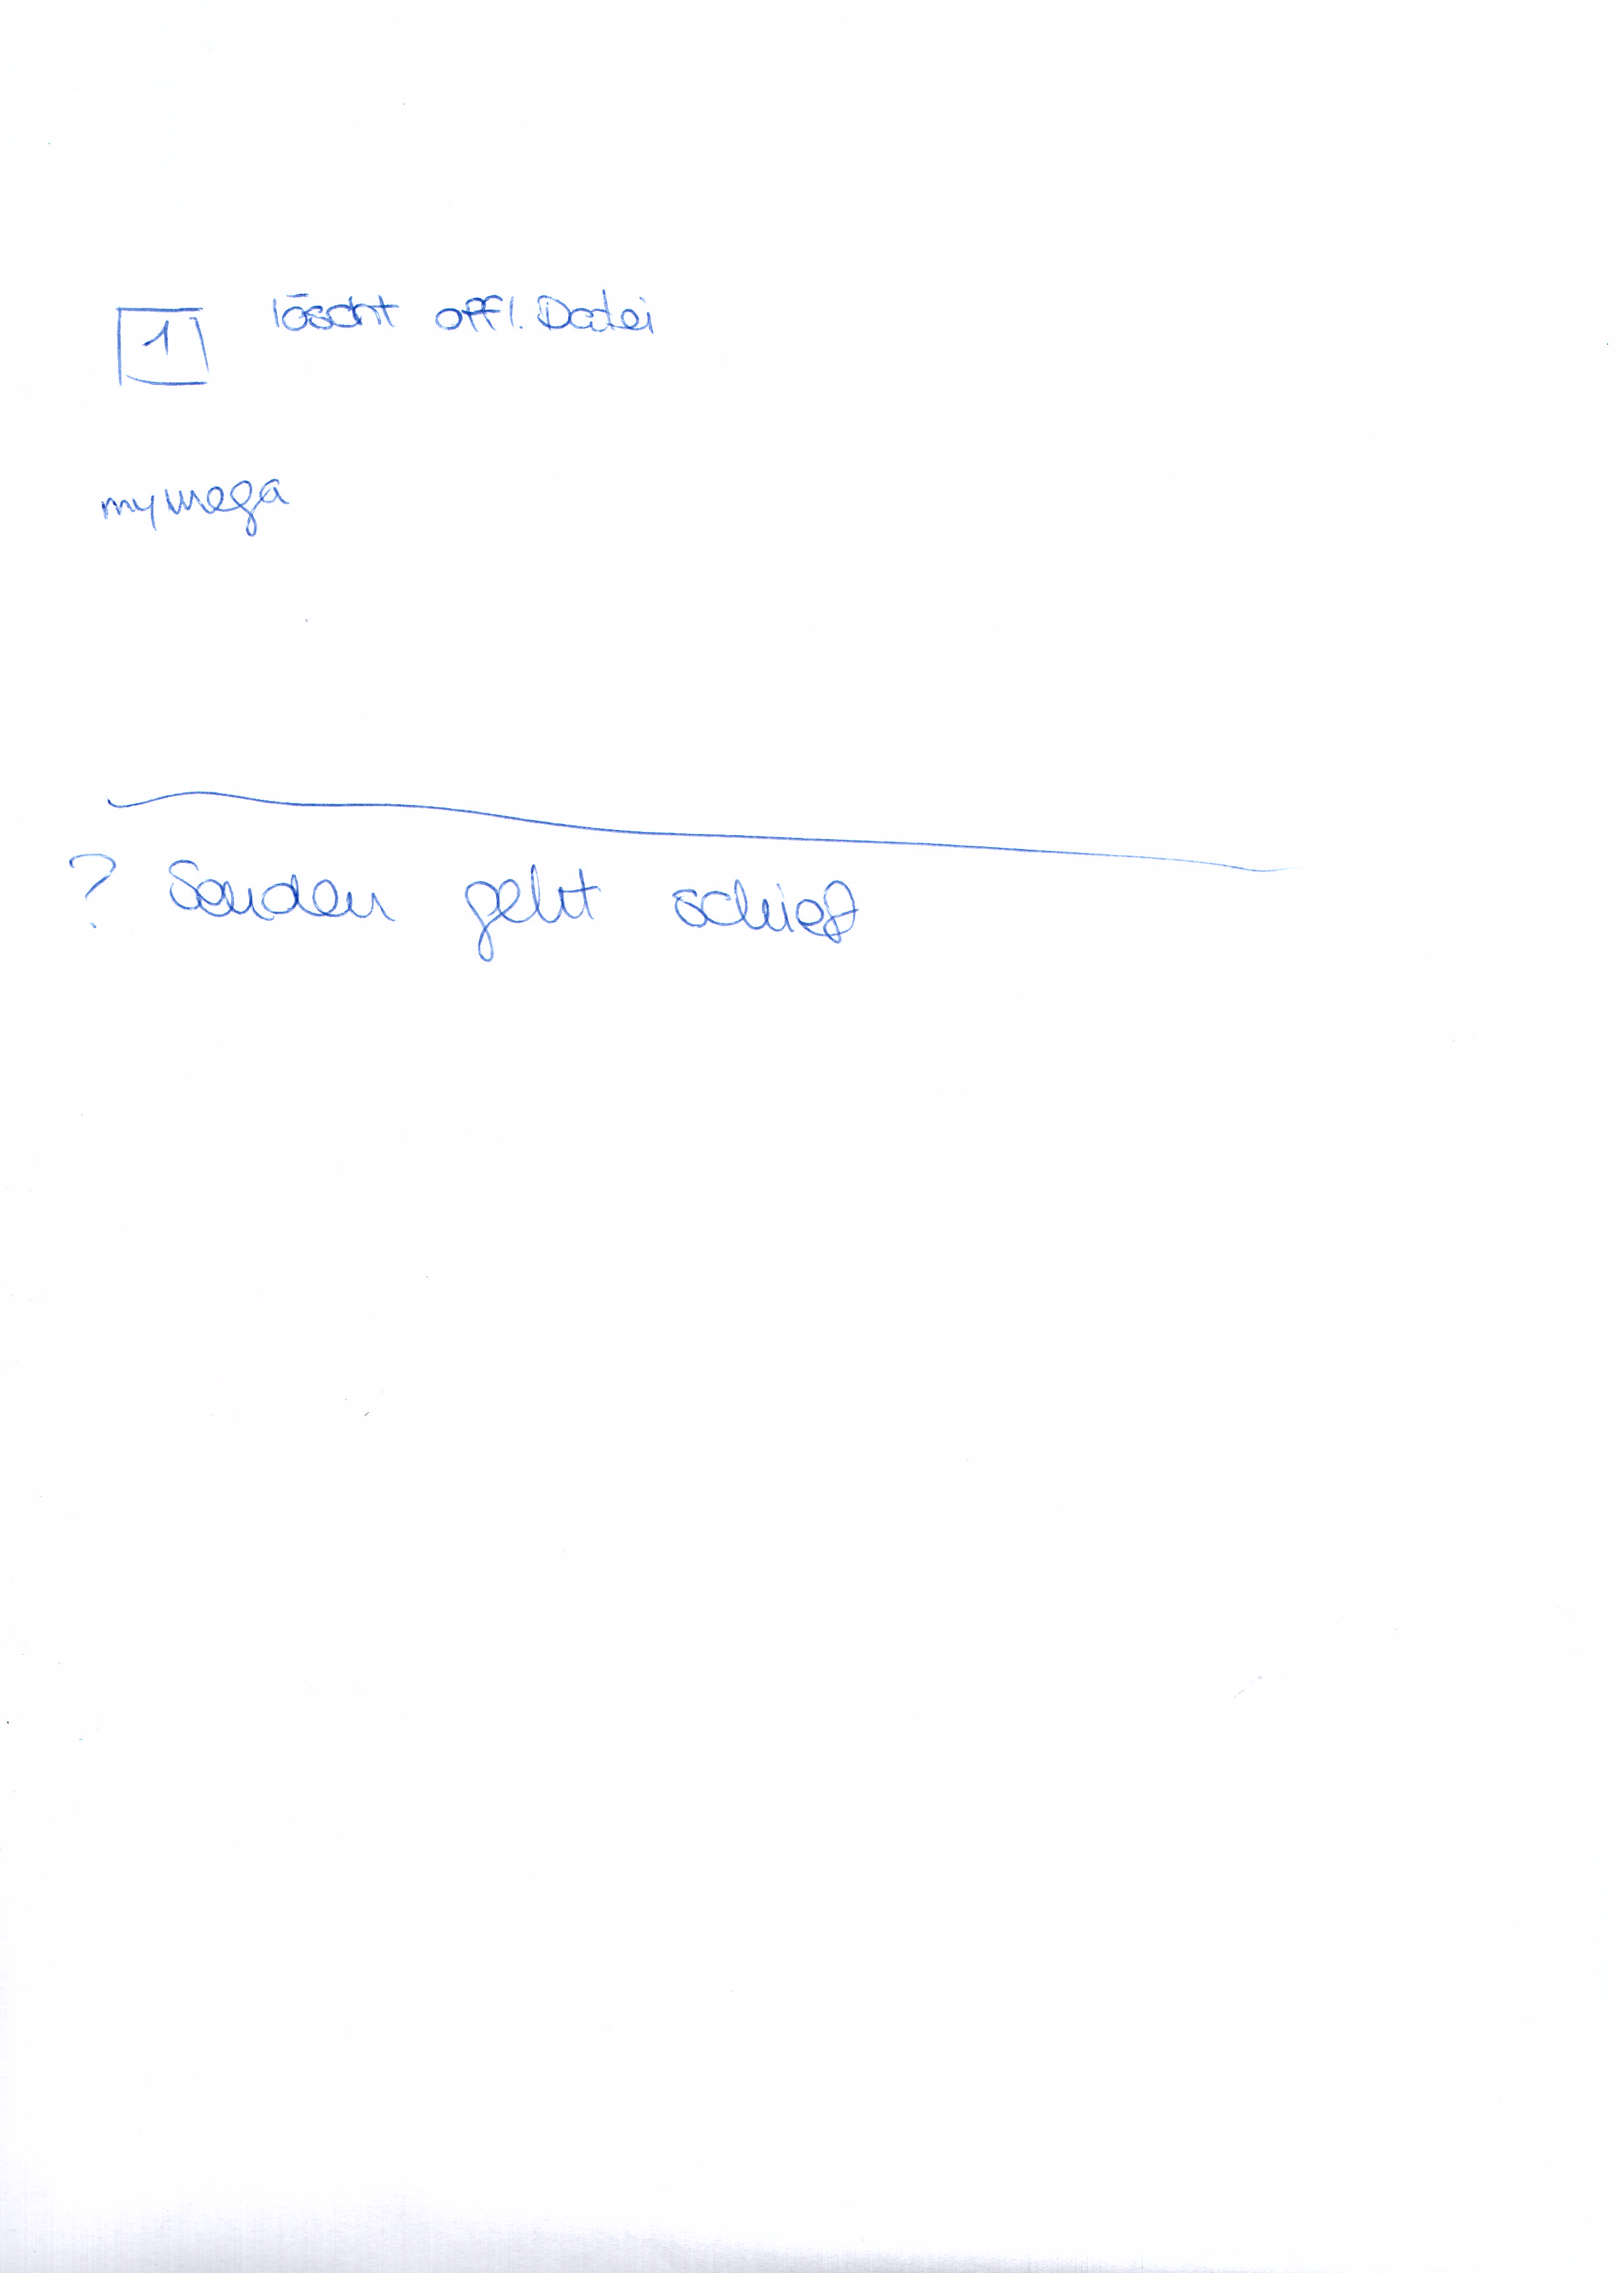 1 löscht offl. Datei
mymega
? Senden geht schief